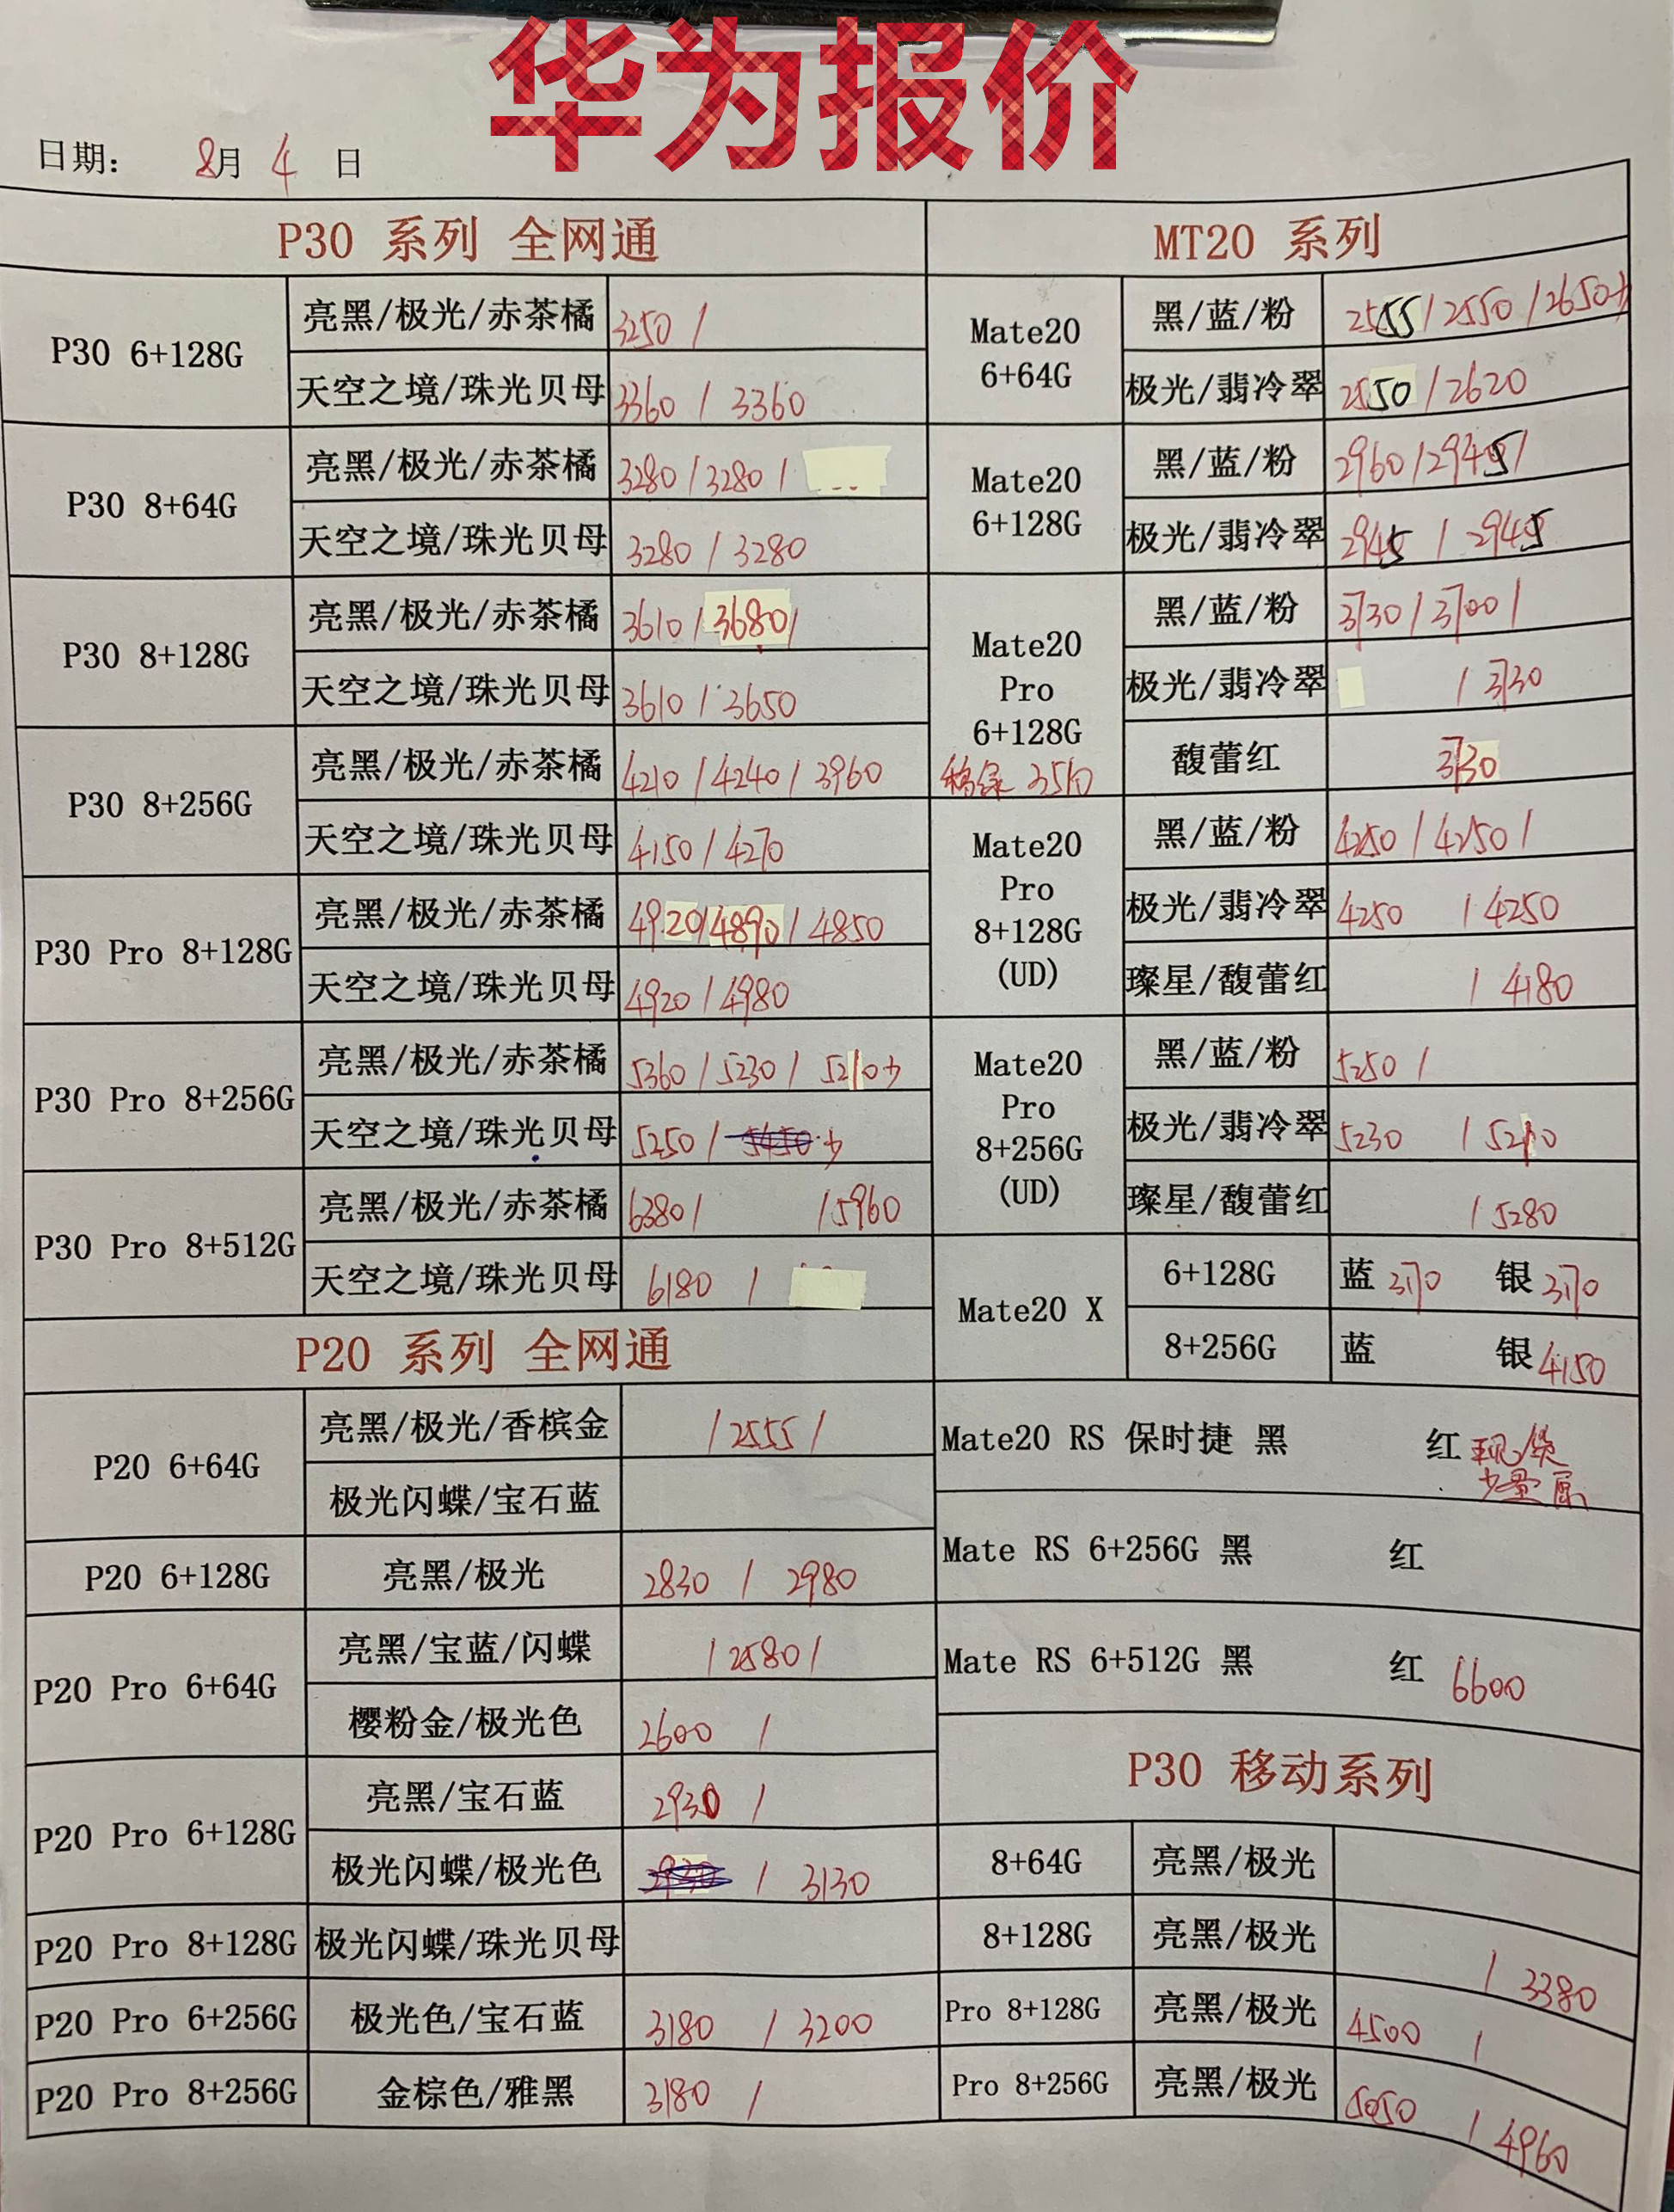 华为报价
日期： 8月 4 日
P30 系列 全网通
P30 6+128G
亮黑/极光/赤茶橘 3250 /
天空之境/珠光贝母 3360 / 3360
P30 8+64G
亮黑/极光/赤茶橘 3280 / 3280 /
天空之境/珠光贝母 3280 / 3280
P30 8+128G
亮黑/极光/赤茶橘 3610 / 3680 /
天空之境/珠光贝母 3610 / 3650
P30 8+256G
亮黑/极光/赤茶橘 4210 / 4240 / 3960
天空之境/珠光贝母 4150 / 4270
P30 Pro 8+128G
亮黑/极光/赤茶橘 4920 / 4890 / 4850
天空之境/珠光贝母 4920 / 4980
P30 Pro 8+256G
亮黑/极光/赤茶橘 5360 / 5230 / 5210少
天空之境/珠光贝母 5250 / 5450少
P30 Pro 8+512G
亮黑/极光/赤茶橘 6380 / / 5960
天空之境/珠光贝母 6180 /
P20 系列 全网通
P20 6+64G
亮黑/极光/香槟金 / 2555 /
极光闪蝶/宝石蓝
P20 6+128G
亮黑/极光 2830 / 2980
P20 Pro 6+64G
亮黑/宝蓝/闪蝶 / 2580 /
樱粉金/极光色 2600 /
P20 Pro 6+128G
亮黑/宝石蓝 2930 /
极光闪蝶/极光色 2930 / 3130
P20 Pro 8+128G
极光闪蝶/珠光贝母
P20 Pro 6+256G
极光色/宝石蓝 3180 / 3200
P20 Pro 8+256G
金棕色/雅黑 3180 /
MT20 系列
Mate20
6+64G
黑/蓝/粉 2555 / 2550 / 2650少
极光/翡冷翠 2550 / 2620
Mate20
6+128G
黑/蓝/粉 2960 / 2945 /
极光/翡冷翠 2945 / 2945
Mate20
Pro
6+128G
3510
黑/蓝/粉 3730 / 3700 /
极光/翡冷翠 / 3730
馥蕾红 3730
Mate20
Pro
8+128G
(UD)
黑/蓝/粉 4250 / 4250 /
极光/翡冷翠 4250 / 4250
璨星/馥蕾红 / 4180
Mate20
Pro
8+256G
(UD)
黑/蓝/粉 5250 /
极光/翡冷翠 5230 / 5210
璨星/馥蕾红 / 5280
Mate20 X
6+128G 蓝 3170 银 3170
8+256G 蓝 银 4150
Mate20 RS 保时捷 黑 红 现货
少量
Mate RS 6+256G 黑 红
Mate RS 6+512G 黑 红 6600
P30 移动系列
8+64G 亮黑/极光
8+128G 亮黑/极光 / 3380
Pro 8+128G 亮黑/极光 4500 /
Pro 8+256G 亮黑/极光 5050 / 4960